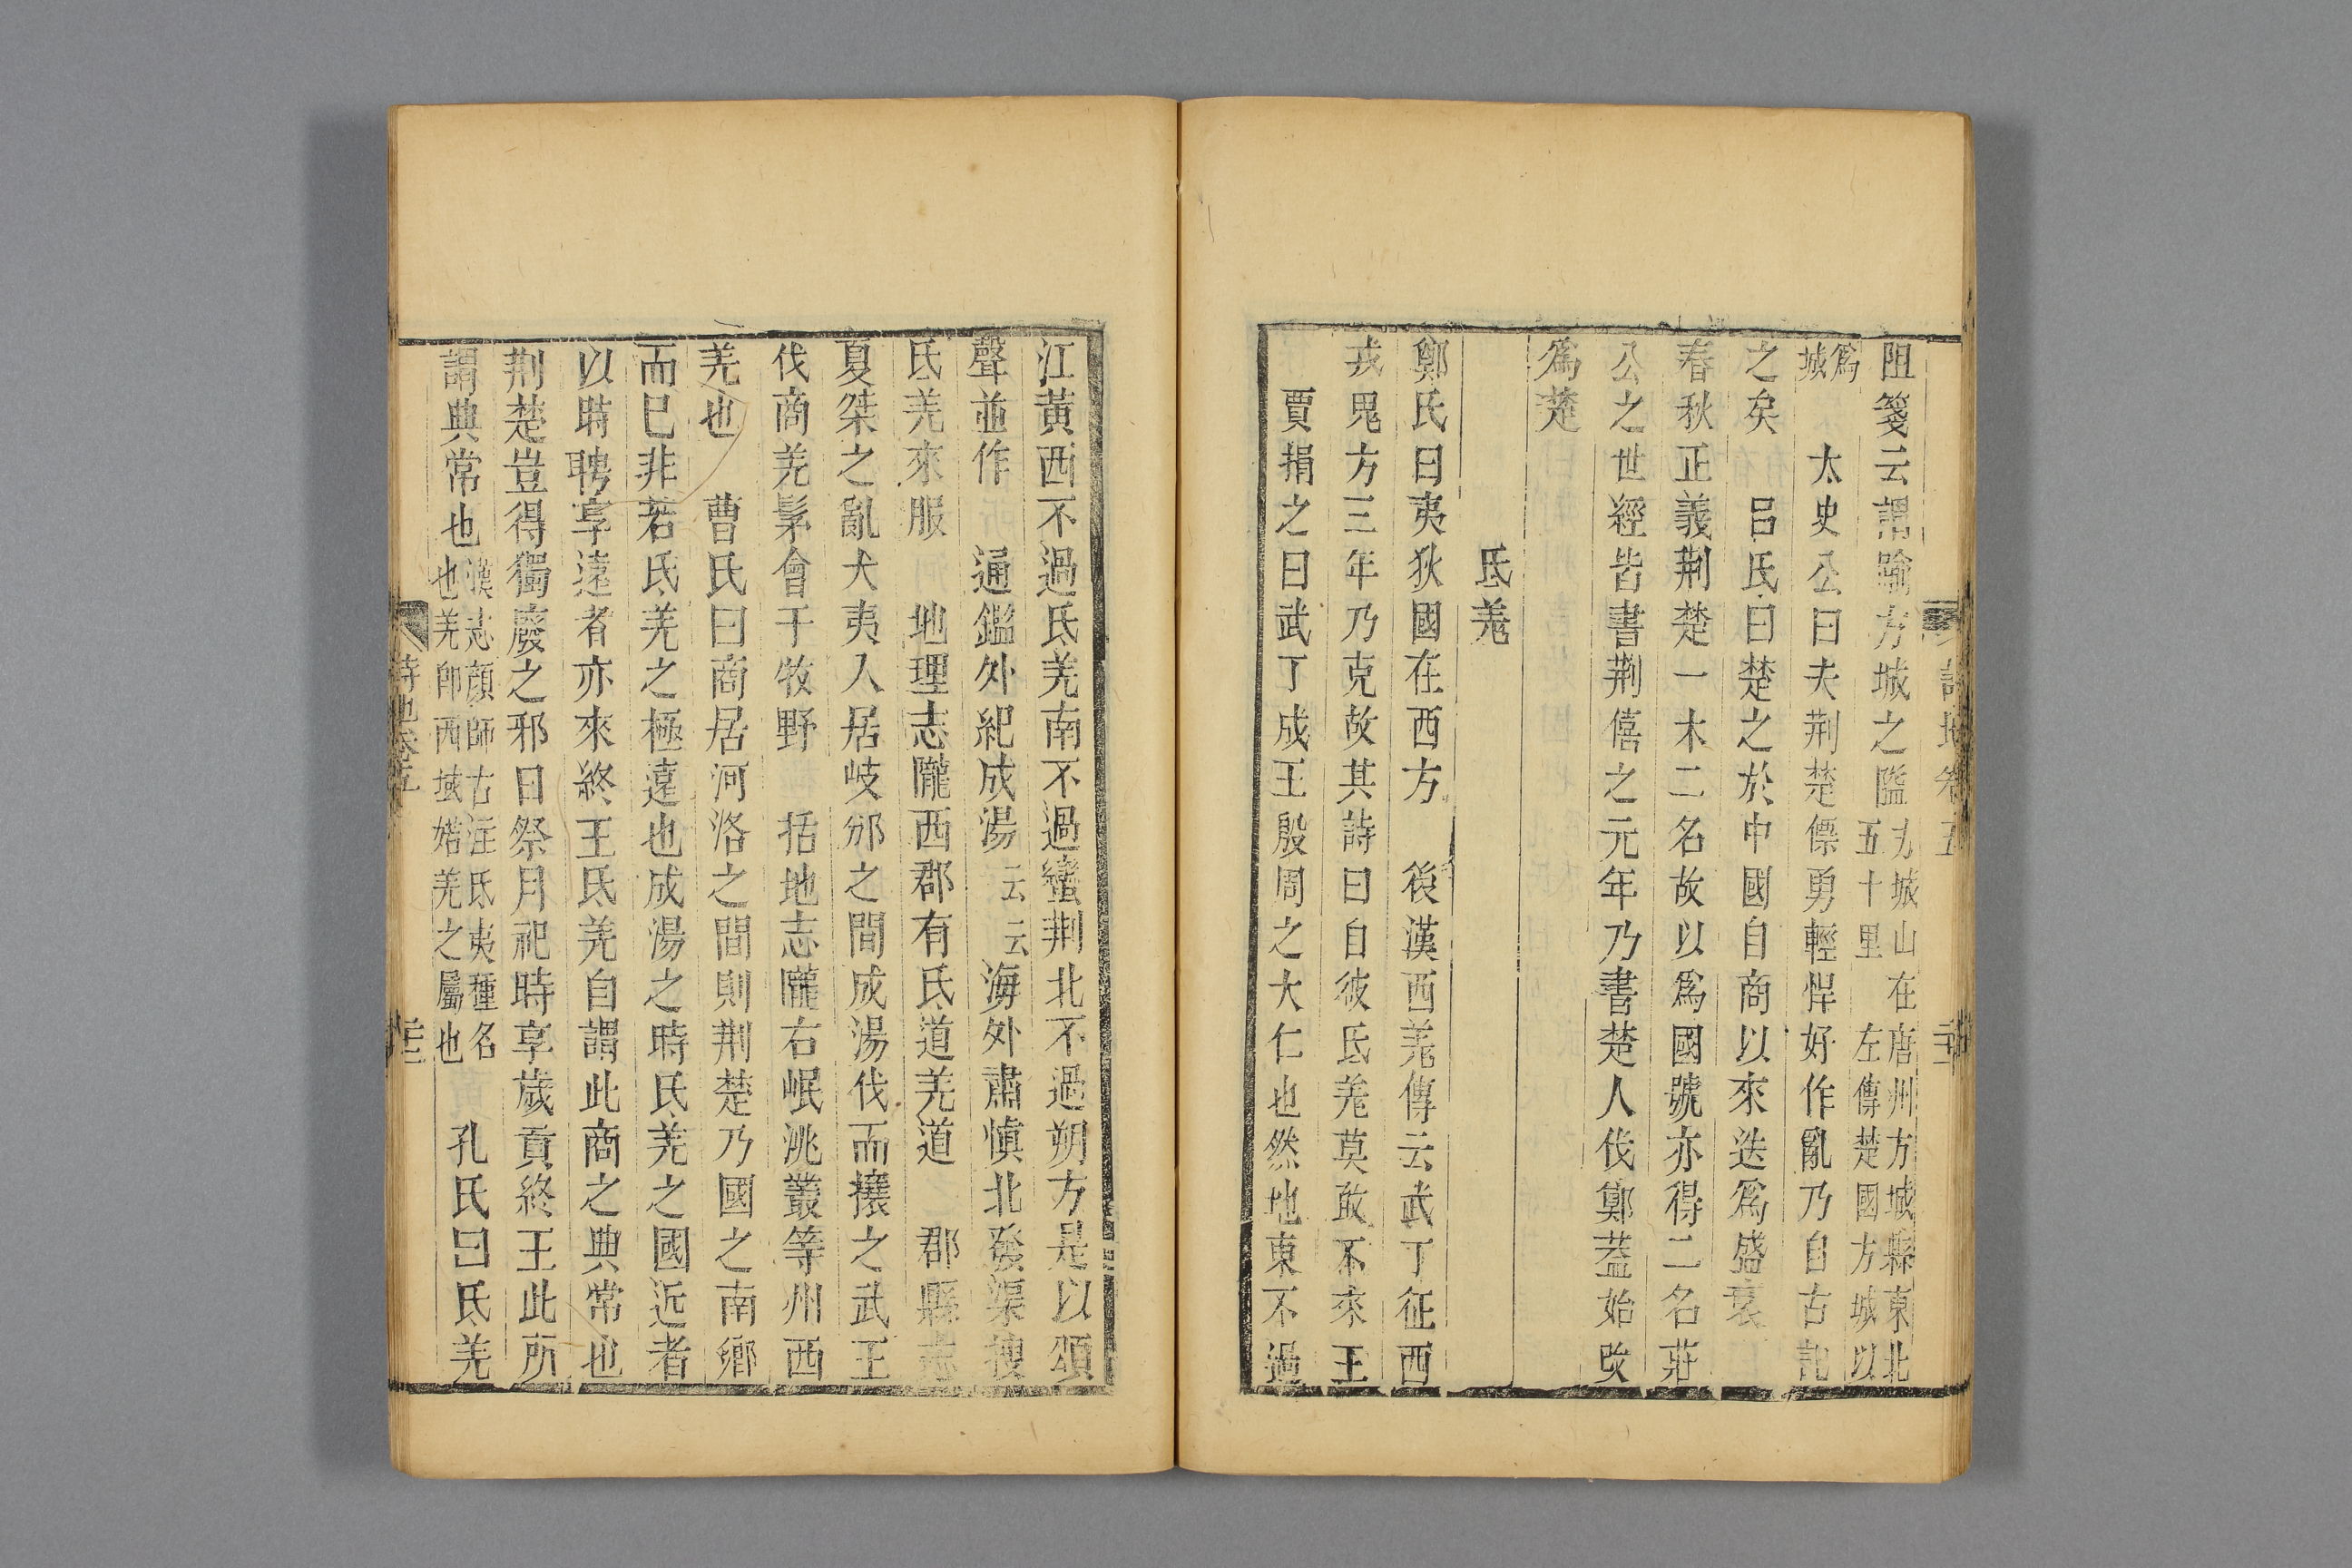 詩地卷五
阻箋云謂踰方城之隘方城山在唐州方城縣東北五十里左傳楚國方城以
爲城 太史公曰夫荆楚僄勇輕悍好作亂乃自古記
之矣 呂氏曰楚之於中國自商以來迭爲盛衰
春秋正義荆楚一木二名故以爲國號亦得二名莊
公之世經皆書荆僖之元年乃書楚人伐鄭蓋始改
爲楚
氐羌
鄭氏曰夷狄國在西方 後漢西羌傳云武丁征西
戎鬼方三年乃克故其詩曰自彼氐羌莫敢不來王
賈捐之曰武丁成王殷周之大仁也然地東不過
江黃西不過氐羌南不過蠻荆北不過朔方是以頌
聲並作 通鑑外紀成湯云云海外肅愼北發渠搜
氐羌來服 地理志隴西郡有氐道羌道 郡縣志
夏桀之亂犬夷入居岐邠之間成湯伐而攘之武王
伐商羌髳會于牧野 括地志隴右岷洮叢等州西
羌也 曹氏曰商居河洛之間則荆楚乃國之南鄉
而巳非若氐羌之極遠也成湯之時氐羌之國近者
以時聘享遠者亦來終王氐羌自謂此商之典常也
荆楚豈得獨廢之邪曰祭月祀時享歲貢終王此所
謂典常也漢志顔師古注氐夷種名也羌卽西域婼羌之屬也 孔氏曰氐羌
詩地卷五